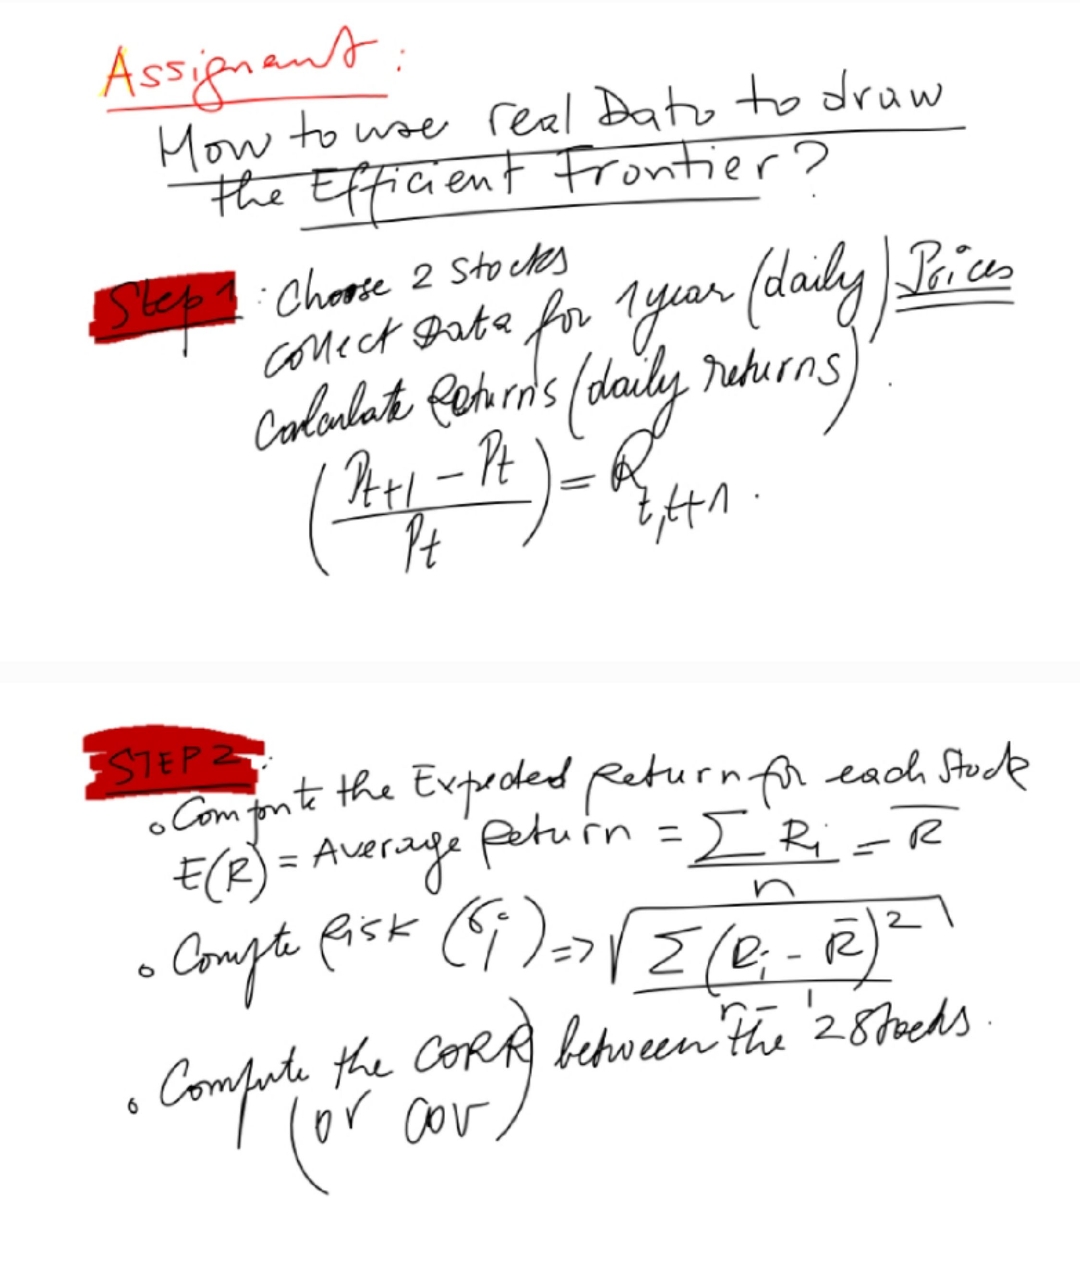 Assignant:
How to use real Data to draw
the Efficient Frontier?
Step 1 : Choose 2 Stocks
collect Data for 1 year (daily) Prices
Calculate Returns (daily returns).
(Pt+1 - Pt / Pt) = Rt,t+1.
STEP 2:
• Compute the Expected Return for each Stock
E(R) = Average Return = Σ Ri / n = R̅
• Compute Risk (σi) => √ Σ (Ri - R̅)² / n - 1
• Compute the CORR between the 2 Stocks.
(or cov)